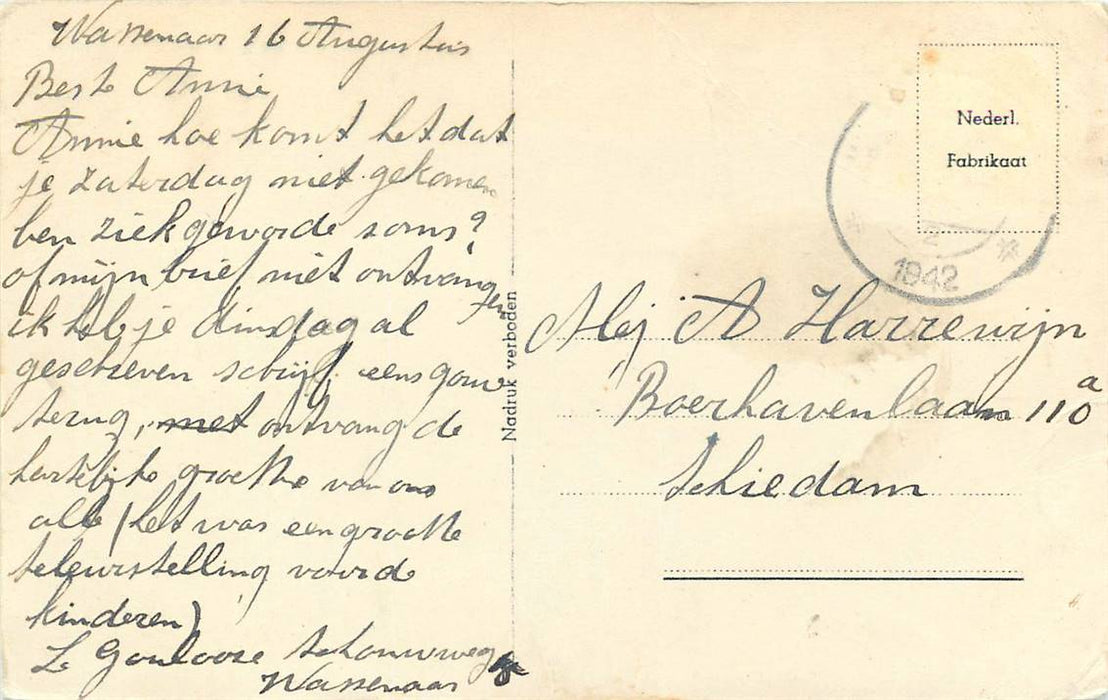 Wassenaar 16 Augustus
Beste Annie
Annie hoe komt het dat
je zaterdag niet gekomen
ben ziek geworde soms?
of mijn brief niet ontvangen
ik heb je dinsdag al
geschreven schrijf eens gauw
terug, met ontvang de
hartelijke groette van ons
alle (het was een grootte
teleurstelling voor de
kinderen)
Schouwweg
Wassenaar
Nadruk verboden
Nederl.
Fabrikaat
1942
Mej A Harrewijn
Boerhavenlaan 110a
Schiedam